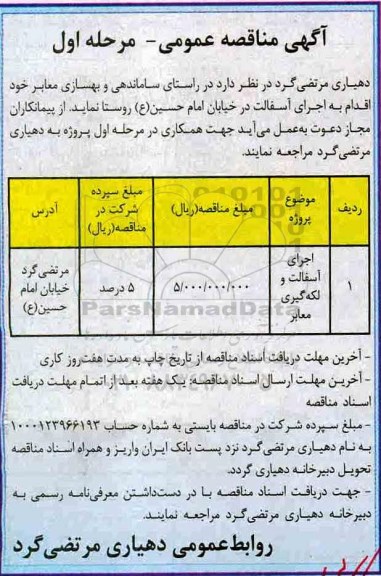 آگهی مناقصه عمومی- مرحله اول
دهیاری مرتضی‌گرد در نظر دارد در راستای ساماندهی و بهسازی معابر خود
اقدام به اجرای آسفالت در خیابان امام حسین(ع) روستا نماید. از پیمانکاران
مجاز دعوت به‌عمل می‌آید جهت همکاری در مرحله اول پروژه به دهیاری
مرتضی‌گرد مراجعه نمایند.
ردیف
موضوع
پروژه
مبلغ مناقصه(ریال)
مبلغ سپرده
شرکت در
مناقصه(ریال)
آدرس
۱
اجرای
آسفالت و
لکه‌گیری
معابر
۵/۰۰۰/۰۰۰/۰۰۰
۵ درصد
مرتضی‌گرد
خیابان امام
حسین(ع)
ParsNamadData
- آخرین مهلت دریافت اسناد مناقصه از تاریخ چاپ به مدت هفت‌روز کاری
- آخرین مهلت ارسال اسناد مناقصه: یک هفته بعد از اتمام مهلت دریافت
اسناد مناقصه
- مبلغ سپرده شرکت در مناقصه بایستی به شماره حساب ۱۰۰۰۱۲۳۹۶۶۱۹۳
به نام دهیاری مرتضی‌گرد نزد پست بانک ایران واریز و همراه اسناد مناقصه
تحویل دبیرخانه دهیاری گردد.
- جهت دریافت اسناد مناقصه با در دست‌داشتن معرفی‌نامه رسمی به
دبیرخانه دهیاری مرتضی‌گرد مراجعه نمایند.
روابط‌عمومی دهیاری مرتضی‌گرد